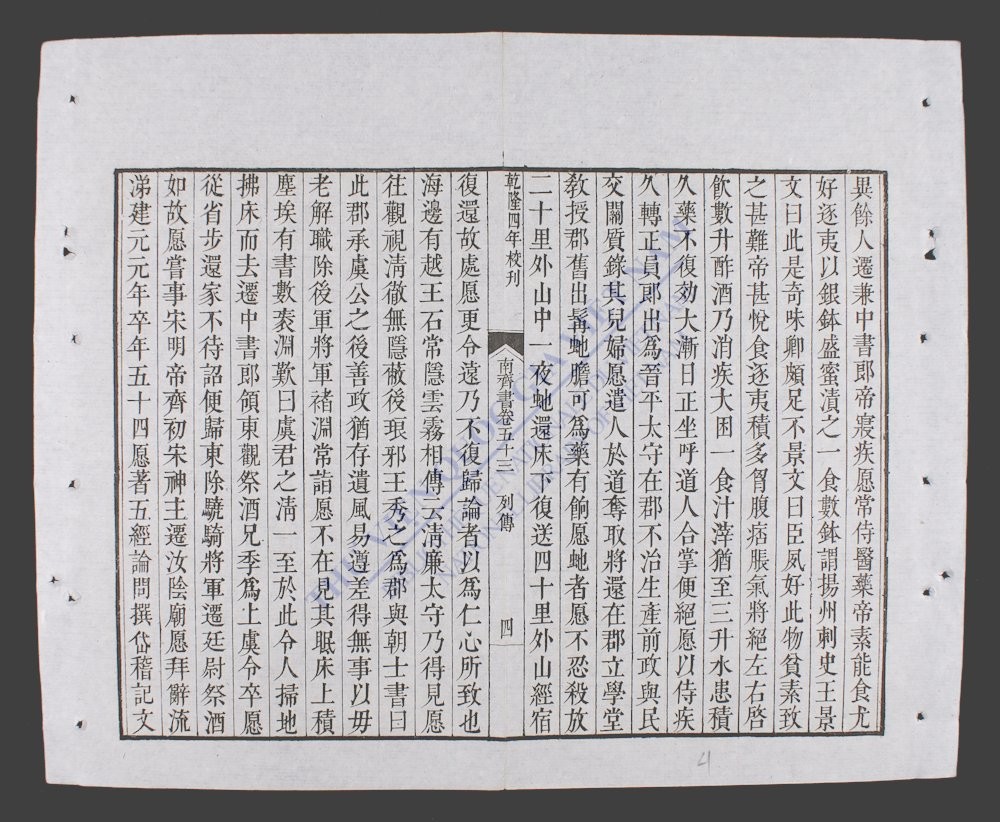 異餘人遷兼中書郎帝寢疾愿常侍醫藥帝素能食尤
好逐夷以銀鉢盛蜜漬之一食數鉢謂揚州刺史王景
文曰此是奇味卿頗足不景文曰臣夙好此物貧素致
之甚難帝甚悅食逐夷積多胷腹痞脹氣將絕左右啓
飲數升酢酒乃消疾大困一食汁滓猶至三升水患積
久藥不復効大漸日正坐呼道人合掌便絕愿以侍疾
久轉正員郎出爲晉平太守在郡不治生產前政與民
交關質錄其兒婦愿遣人於道奪取將還在郡立學堂
敎授郡舊出髯虵膽可爲藥有餉愿虵者愿不忍殺放
二十里外山中一夜虵還床下復送四十里外山經宿
乾隆四年校刊
南齊書卷五十三 列傳 四
復還故處愿更令遠乃不復歸論者以爲仁心所致也
海邊有越王石常隱雲霧相傳云淸廉太守乃得見愿
往觀視淸徹無隱蔽後琅邪王秀之爲郡與朝士書曰
此郡承虞公之後善政猶存遺風易遵差得無事以毋
老解職除後軍將軍褚淵常詣愿不在見其眠床上積
塵埃有書數袠淵歎曰虞君之淸一至於此令人掃地
拂床而去遷中書郎領東觀祭酒兄季爲上虞令卒愿
從省步還家不待詔便歸東除驍騎將軍遷廷尉祭酒
如故愿嘗事宋明帝齊初宋神主遷汝陰廟愿拜辭流
涕建元元年卒年五十四愿著五經論問撰會稽記文
4